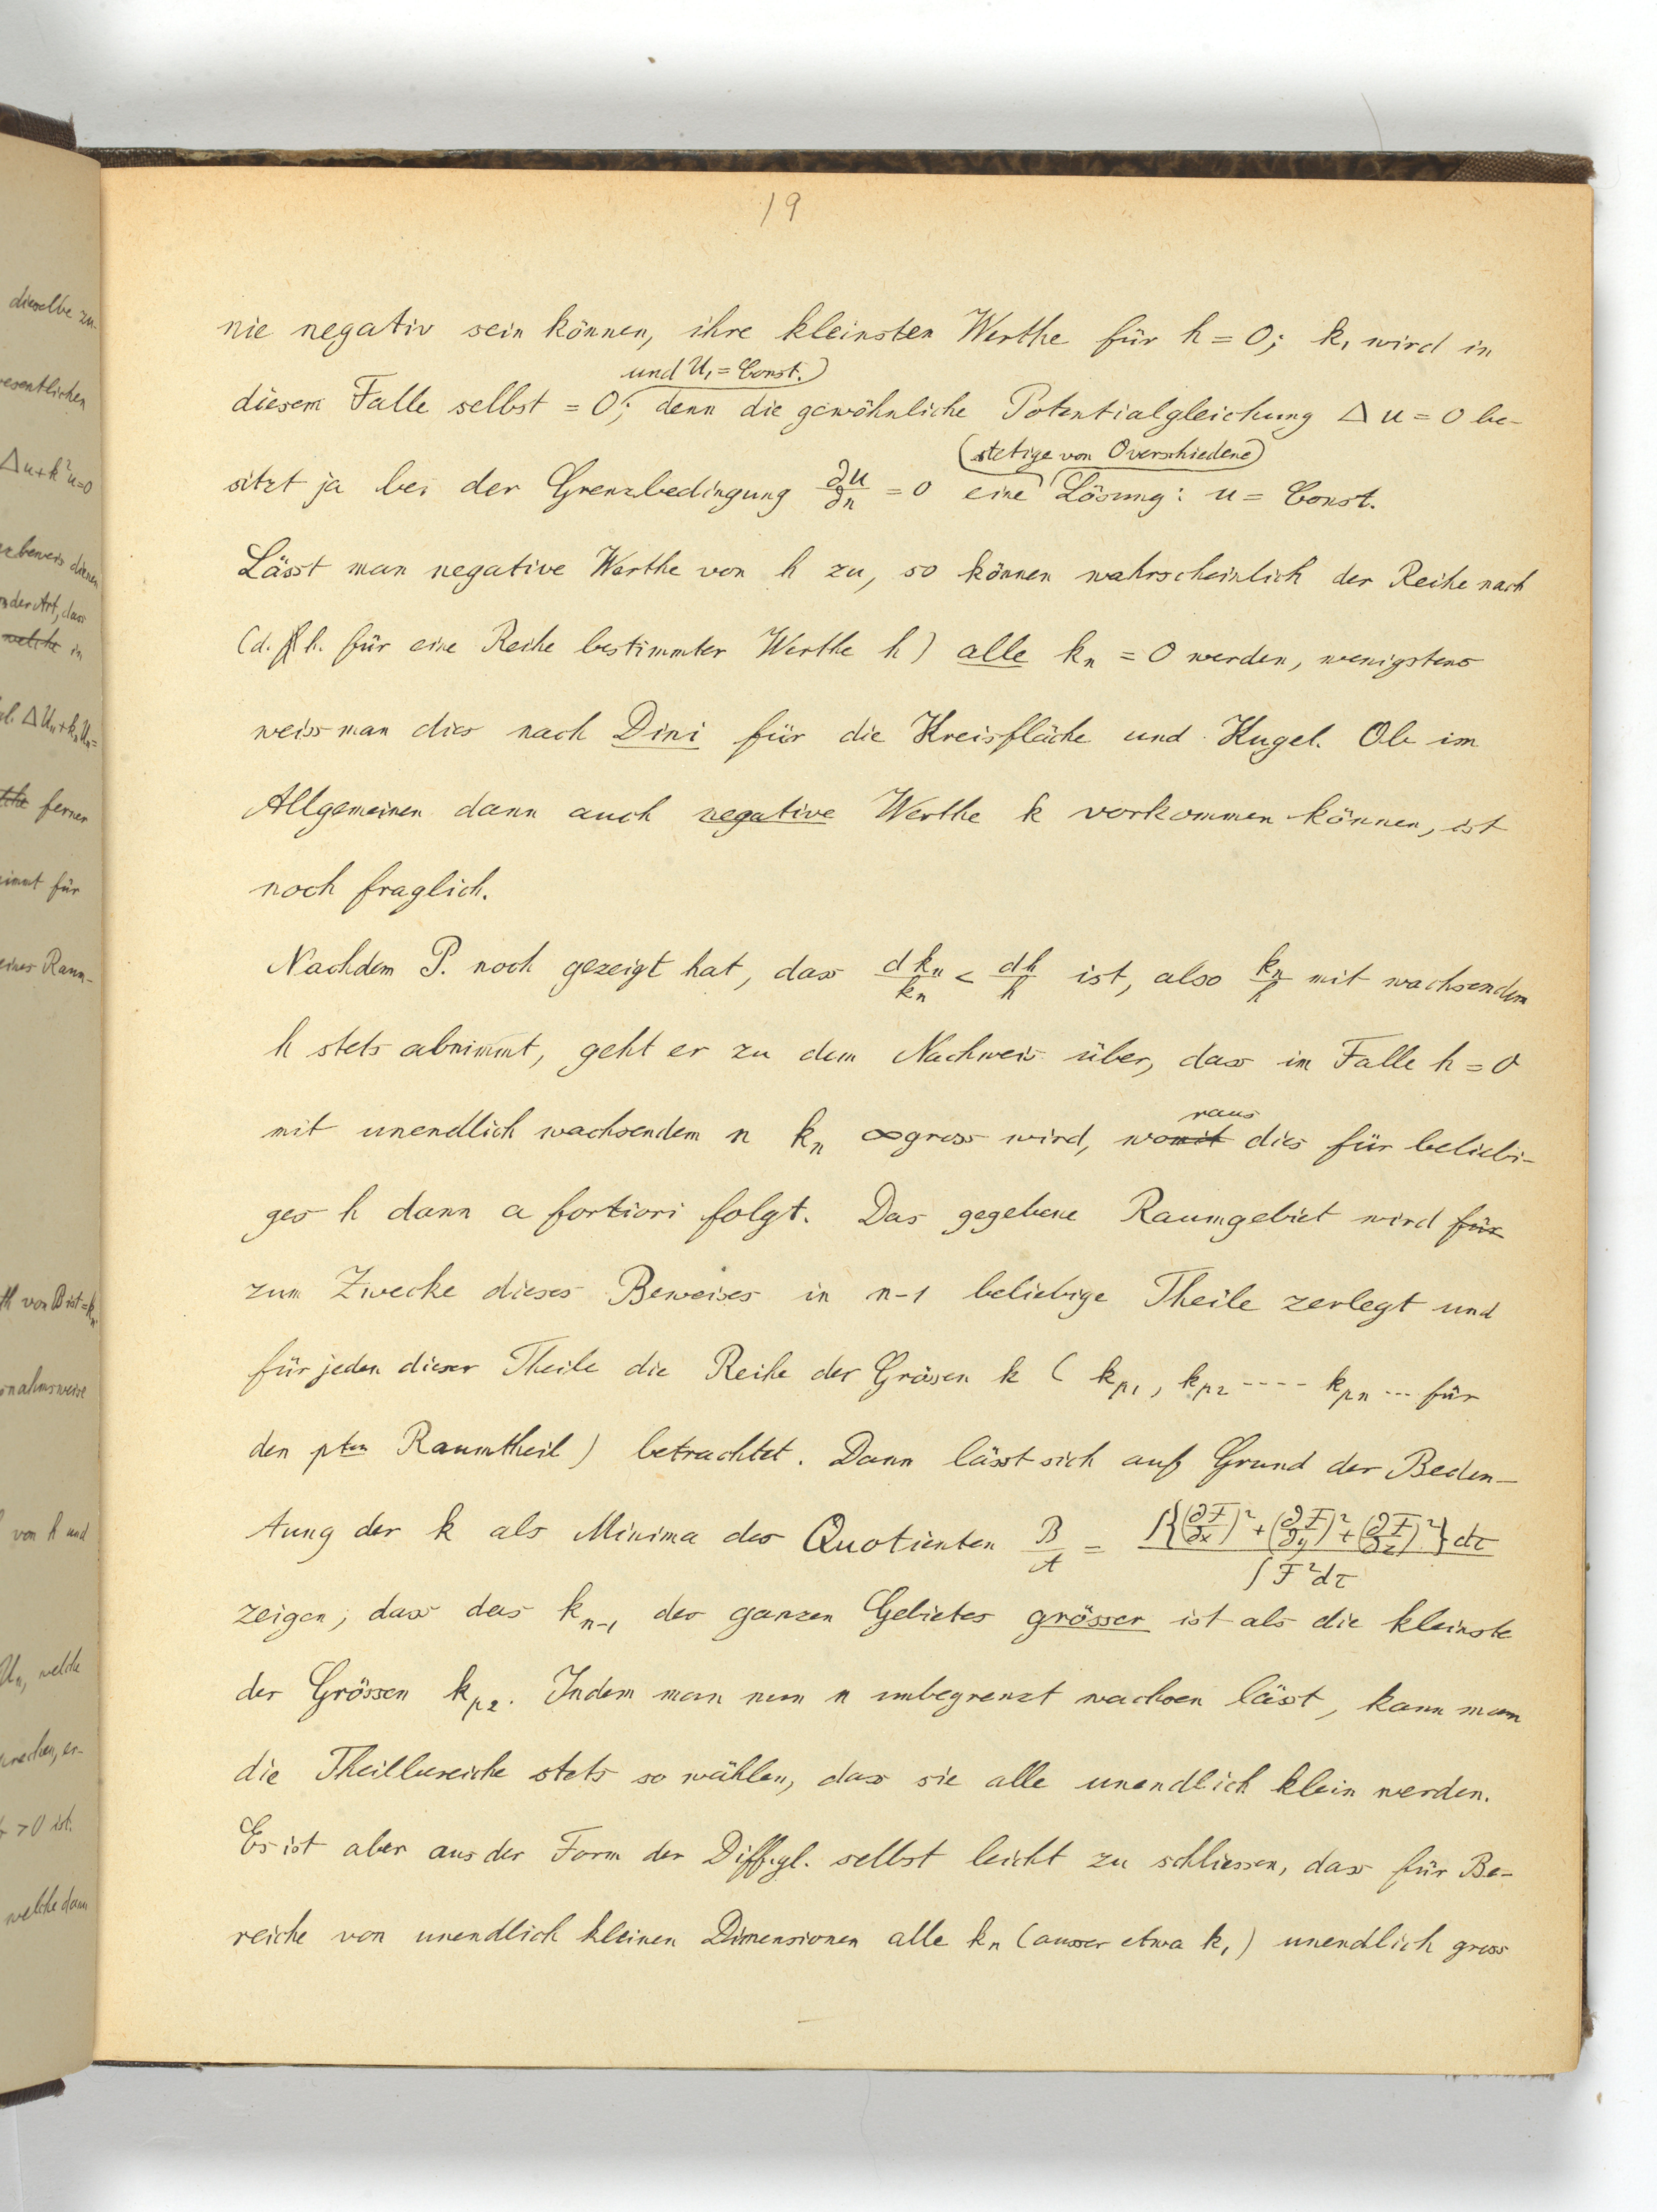 19
nie negativ sein können, ihre kleinsten Werthe für h = 0; k₁ wird in
und U₁ = Const.
diesem Falle selbst = 0; denn die gewöhnliche Potentialgleichung Δ u = 0 be-
stetige von 0 verschiedene
sitzt ja bei der Grenzbedingung ∂u/∂n = 0 eine Lösung: u = Const.
Lässt man negative Werthe von h zu, so können wahrscheinlich der Reihe nach
(d. h. für eine Reihe bestimmter Werthe h) alle kₙ = 0 werden, wenigstens
weiss man dies nach Dini für die Kreisfläche und Kugel. Ob im
Allgemeinen dann auch negative Werthe k vorkommen können, ist
noch fraglich.
Nachdem P. noch gezeigt hat, dass dkₙ/kₙ < dh/h ist, also kₙ/h mit wachsendem
h stets abnimmt, geht er zu dem Nachweis über, dass im Falle h = 0
raus
mit unendlich wachsendem n kₙ ∞gross wird, womit dies für beliebi-
ges h dann a fortiori folgt. Das gegebene Raumgebiet wird für
zum Zwecke dieses Beweises in n-1 beliebige Theile zerlegt und
für jeden dieser Theile die Reihe der Grössen k ( k_p1, k_p2 ---- k_pn ... für
den pten Raumtheil) betrachtet. Dann lässt sich auf Grund der Bedeu-
tung der k als Minima des Quotienten B/A = ∫{(∂F/∂x)² + (∂F/∂y)² + (∂F/∂z)²}dτ / ∫F²dτ
zeigen, dass das kₙ₋₁ des ganzen Gebietes grösser ist als die kleinste
der Grössen k_p2. Indem man nun n unbegrenzt wachsen lässt, kann man
die Theilbereiche stets so wählen, dass sie alle unendlich klein werden.
Es ist aber aus der Form der Diff.gl. selbst leicht zu schliessen, dass für Be-
reiche von unendlich kleinen Dimensionen alle kₙ (ausser etwa k₁) unendlich gross